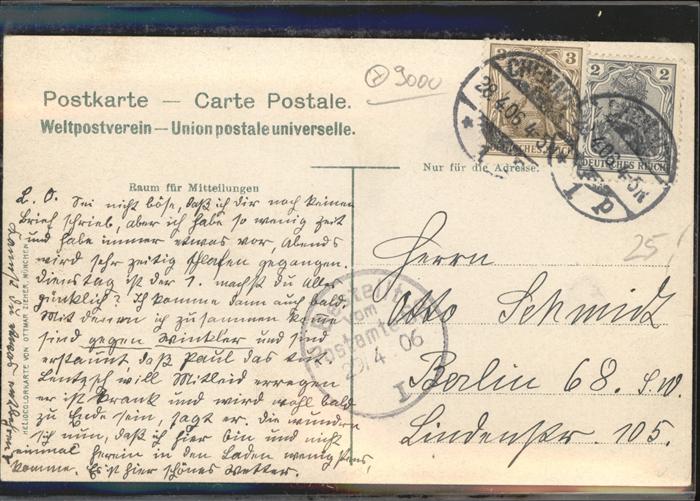 Postkarte — Carte Postale.
Weltpostverein — Union postale universelle.
9000
Nur für die Adresse.
Raum für Mitteilungen
3
DEUTSCHES REICH
2
DEUTSCHES REICH
CHEMN
28.4.06.4-5N
1
CHEMN
4.06.4-5N
1 p
25
L. O. Sei nicht böse, daß ich Dir noch keinen
Brief schrieb, aber ich habe so wenig Zeit
und habe immer etwas vor, Abends
wird sehr zeitig schlafen gegangen.
Dienstag ist der 1. machst du Alles
pünktlich? Ich komme dann auch bald.
Mit denen ich zusammen komme
sind gegen Winkler und sind
erstaunt daß Paul das tut.
Lentzsch will Mitleid erregen
er ist krank und wird wohl bald
zu Ende sein, sagt er. Die wundern
sich nun, daß ich hier bin und nicht
einmal herein in den Laden
komme. Es ist hier schönes Wetter.
HELIOCOLORKARTE VON OTTMAR ZIEHER, MÜNCHEN
Bestellt
vom
Postamte
29.4.06
I
Herrn
Otto Schmidt
Berlin 68. S.W.
Lindenstr. 105.